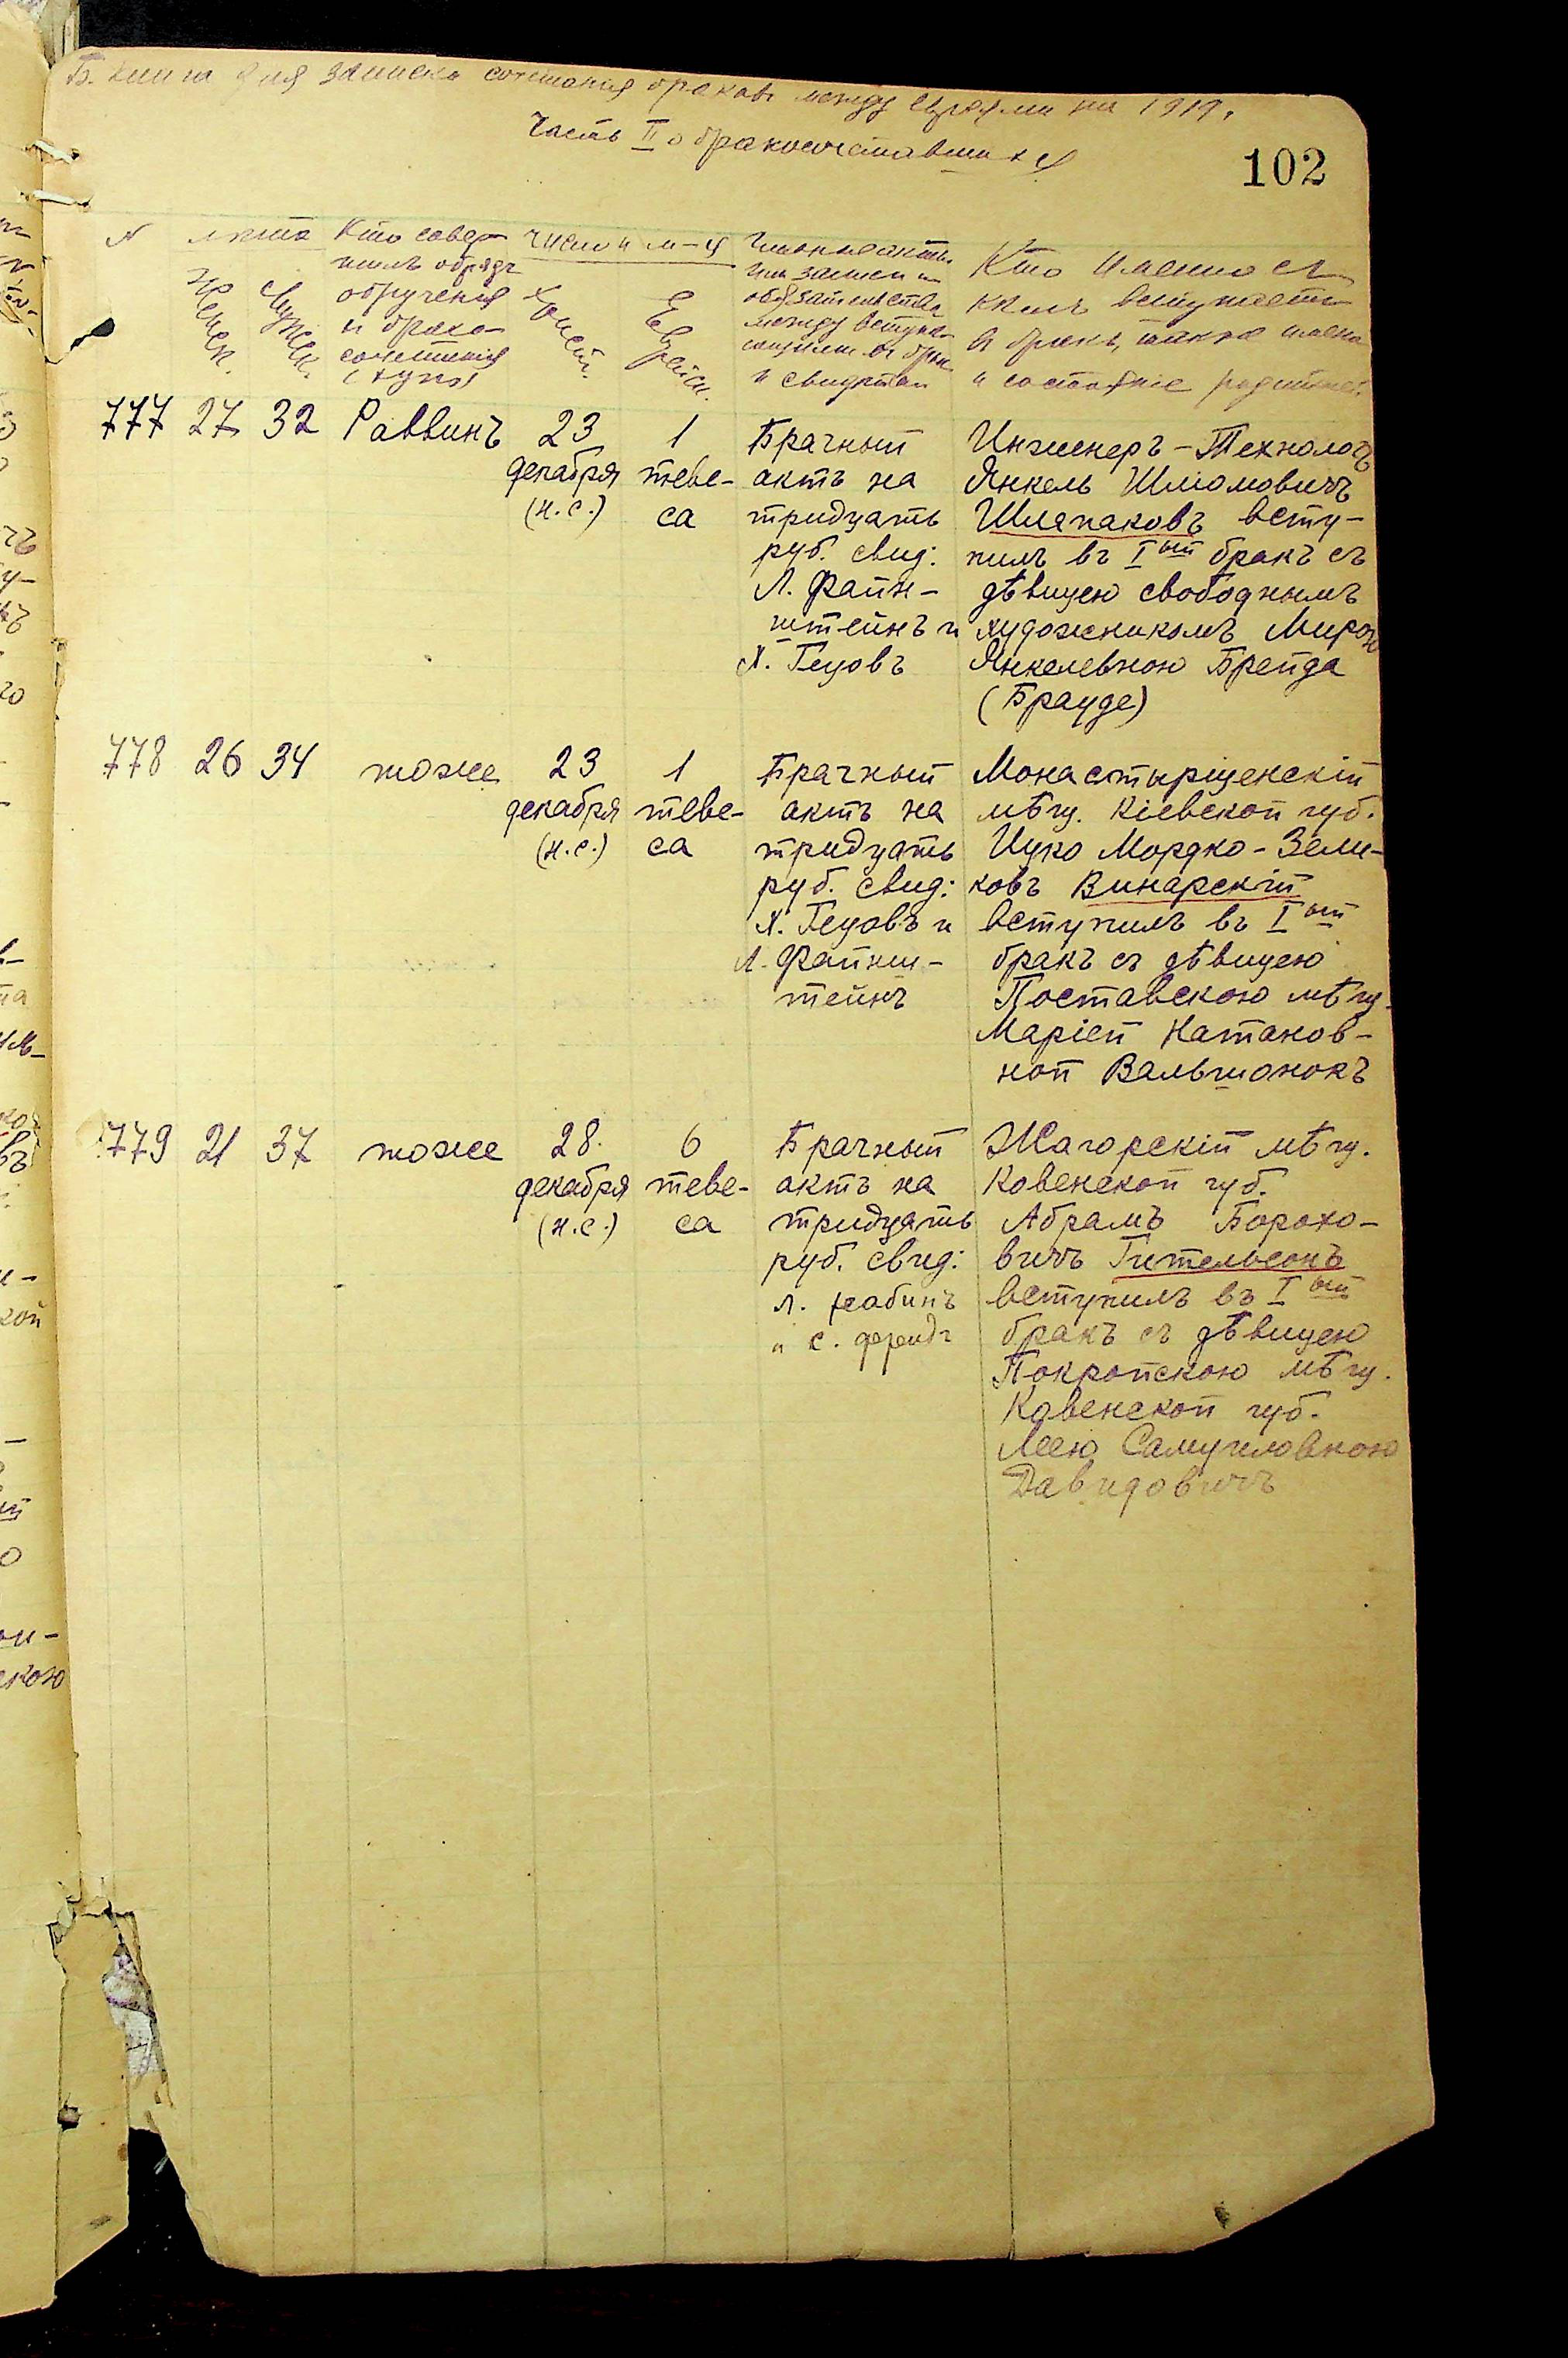 Б. Книга для записки сочетанія браковъ между евреями на 1919.
Часть II о бракосочетавшихся
102
N
лѣта
Женск.
Мужск.
Кто совер-
шилъ обрядъ
обрученія
и брако-
сочетанія
(хупэ)
число и м-ц
Христ.
Еврейск.
Главные акты
или записи и
обязательства
между вступа-
ющими въ брак
и свидѣтели
Кто именно съ
кѣмъ вступаетъ
въ бракъ, также имена
и состояніе родителей
777 27 32 Раввинъ
23
декабря
(н.с.)
1
теве-
са
Брачный
актъ на
тридцать
руб. свид:
Л. Файн-
штейнъ и
Х. Гецовъ
Инженеръ-Технологъ
Янкель Шліомовичъ
Шлапаковъ всту-
пилъ въ Iый бракъ съ
дѣвицею свободнымъ
художникомъ Мирою
Янкелевною Брейда
(Брауде)
778 26 34 тоже
23
декабря
(н.с.)
1
теве-
са
Брачный
актъ на
тридцать
руб. свид:
Х. Гецовъ и
Л. Файнш-
тейнъ
Монастырщенскій
мѣщ. Кіевской губ.
Ицко Мордко-Зели-
ковъ Винарскій
вступилъ въ Iый
бракъ съ дѣвицею
Поставскою мѣщ.
Маріей Натанов-
ной Вальшонокъ
779 21 37 тоже
28
декабря
(н.с.)
6
теве-
са
Брачный
актъ на
тридцать
руб. свид:
Л.
и С.
Жагорскій мѣщ.
Ковенской губ.
Абрамъ Борохо-
вичъ Гительсонъ
вступилъ въ Iый
бракъ съ дѣвицею
Покройскою мѣщ.
Ковенской губ.
Леею Самуиловною
Давидовичъ